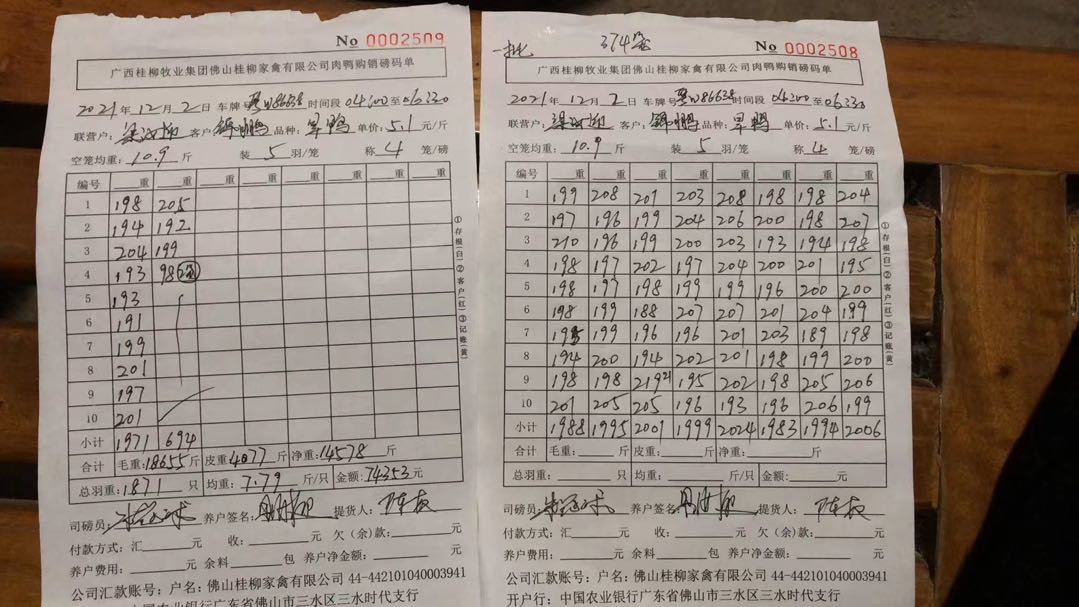 No 0002509
广西桂柳牧业集团佛山桂柳家禽有限公司肉鸭购销磅码单
2021年12月2日 车牌号 时间段 04300至06320
联营户: 客户: 品种:旱鸭 单价:5.1元/斤
空笼均重:10.9斤 装5羽/笼 称4笼/磅
编号 重 重 重 重 重 重 重 重
1 198 205
2 194 192
3 204 199
4 193 98
5 193
6 191
7 199
8 201
9 197
10 201
小计 1971 694
合计 毛重:18655斤 皮重4077斤 净重:14578斤
总羽重:1871只 均重:7.79斤/只 金额:74353元
司磅员: 养户签名: 提货人:
付款方式:汇 元 收: 元 欠(余)款: 元
养户费用: 元 余料 包 养户净金额: 元
公司汇款账号:户名:佛山桂柳家禽有限公司 44-442101040003941
中国农业银行广东省佛山市三水区三水时代支行
①存根(白)②客户(红)③记账(黄)
一批 374笼
No 0002508
广西桂柳牧业集团佛山桂柳家禽有限公司肉鸭购销磅码单
2021年12月2日 车牌号 时间段 04300至06320
联营户: 客户: 品种:旱鸭 单价:5.1元/斤
空笼均重:10.9斤 装5羽/笼 称4笼/磅
编号 重 重 重 重 重 重 重 重
1 199 208 201 203 208 198 198 204
2 197 196 199 204 206 200 198 207
3 210 196 199 200 203 193 194 198
4 198 197 202 197 204 200 201 195
5 198 197 198 199 199 196 200 200
6 198 199 188 207 207 201 204 199
7 195 199 196 196 201 203 189 198
8 194 200 194 202 201 198 199 200
9 198 198 219 195 202 198 205 206
10 201 205 205 196 193 196 206 199
小计 1988 1995 2001 1999 2024 1983 1994 2006
合计 毛重: 斤 皮重: 斤 净重: 斤
总羽重: 只 均重: 斤/只 金额: 元
司磅员: 养户签名: 提货人:
付款方式:汇 元 收: 元 欠(余)款: 元
养户费用: 元 余料 包 养户净金额: 元
公司汇款账号:户名:佛山桂柳家禽有限公司 44-442101040003941
开户行:中国农业银行广东省佛山市三水区三水时代支行
①存根(白)②客户(红)③记账(黄)